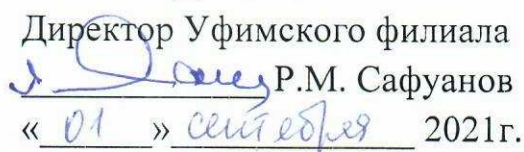 Директор Уфимского филиала
Р.М. Сафуанов
«01» сентября 2021г.